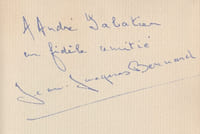 A André Sabatier
en fidèle amitié
Jean-Jacques Bernard